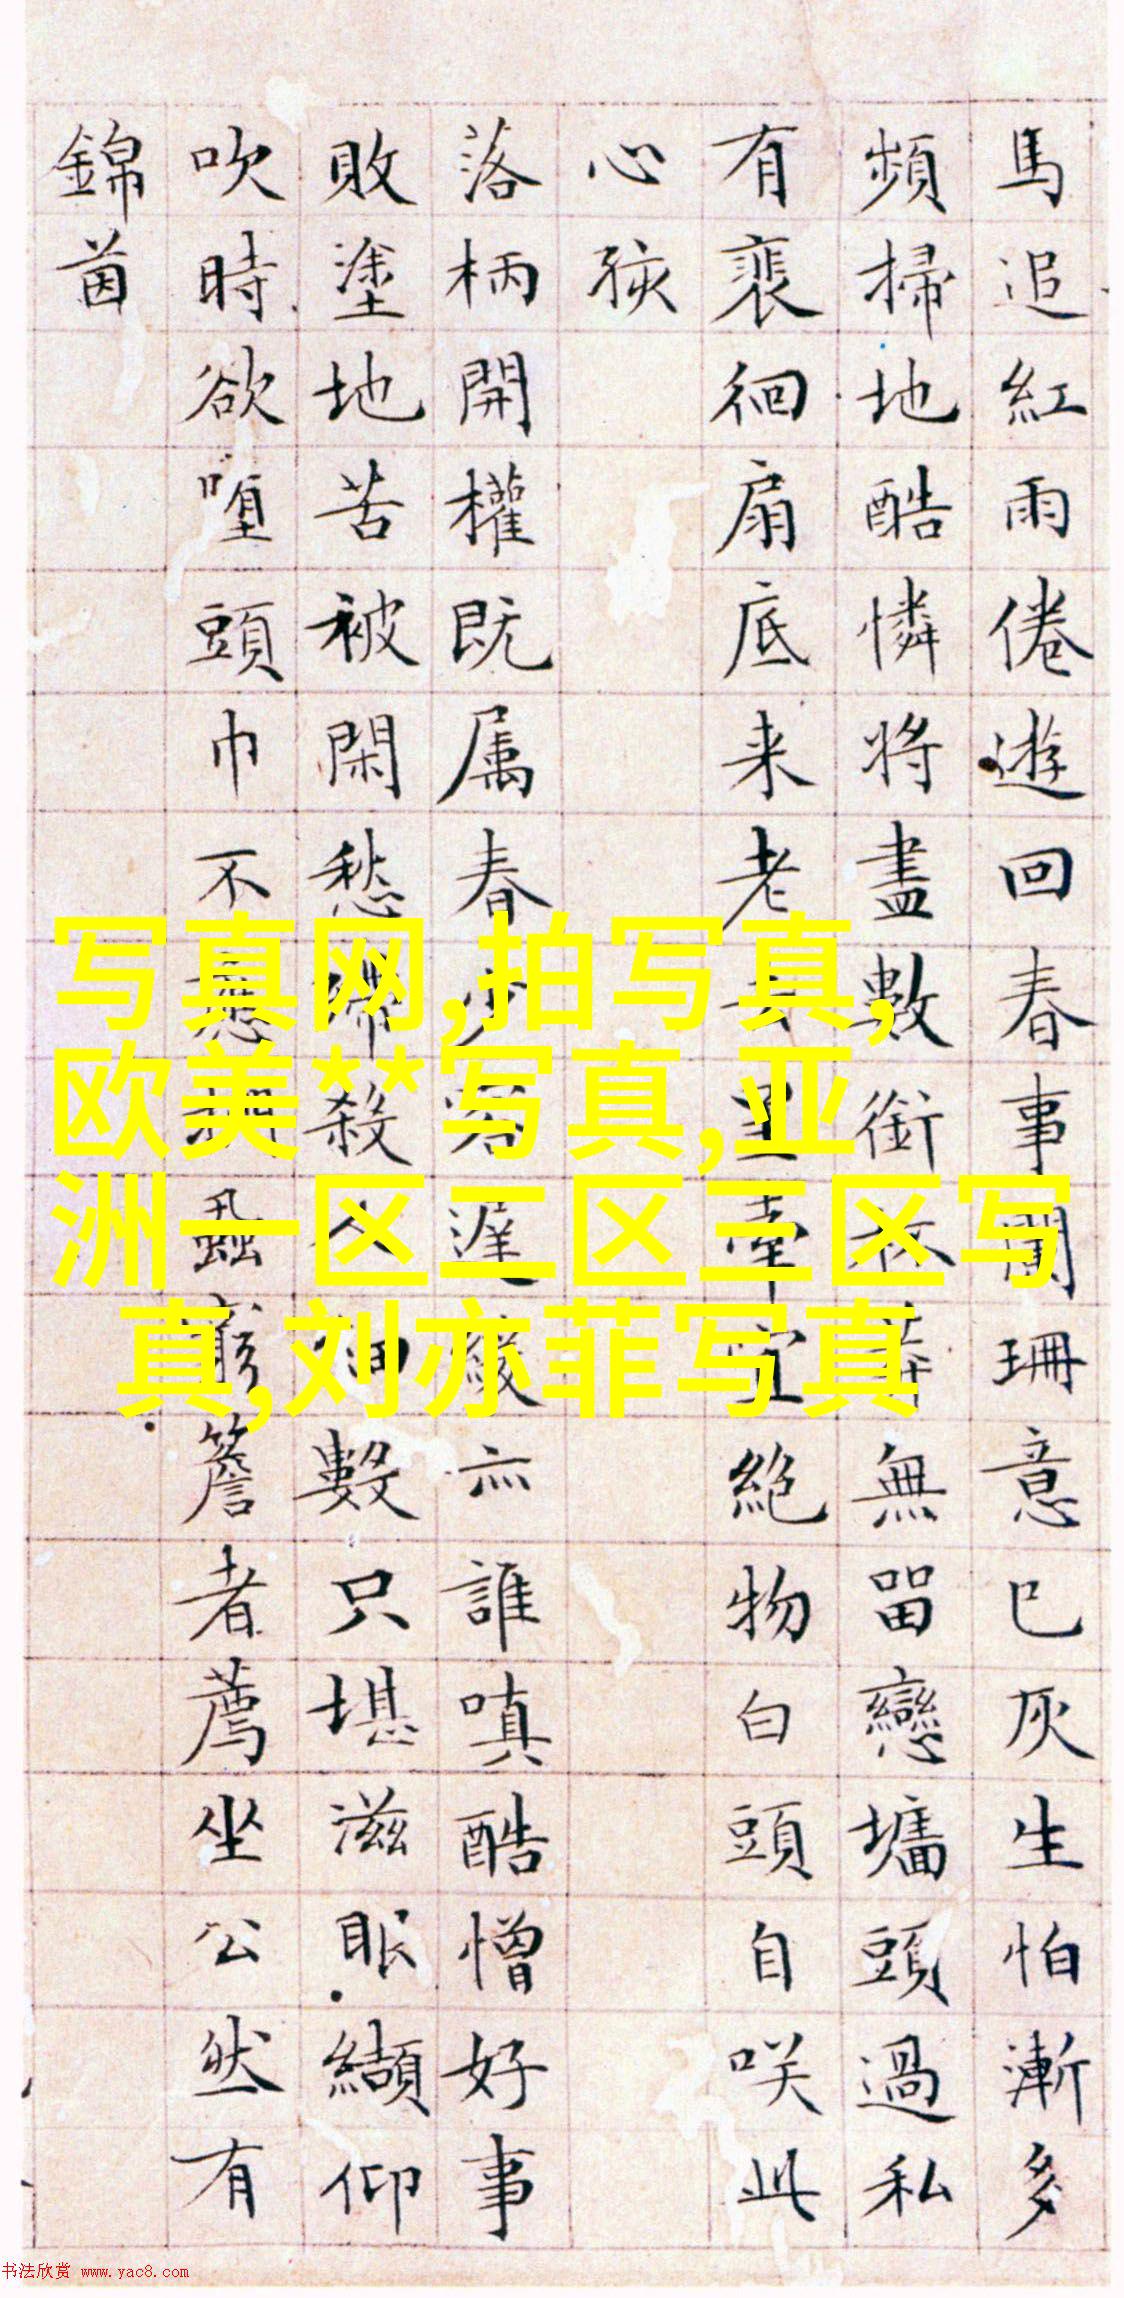 馬追紅雨倦遊回春事闌珊意已灰生怕漸多
頻掃地酷憐將盡數銜杯無留戀墻頭過私
有裴徊扇底来老去罣牽宜絶物白頭自咲此
心孩
落柄開權既属春少容遲緩亦誰嗔酷憎好事
敗塗地苦被閑愁殢殺人細數只堪滋眼纈仰
吹時欲墮頭巾不應捫蝨窮簷者薦坐公然有
錦茵
写真网,拍写真,
欧美**写真,亚
洲一区二区三区写
真,刘亦菲写真
书法欣赏 www.yac8.com